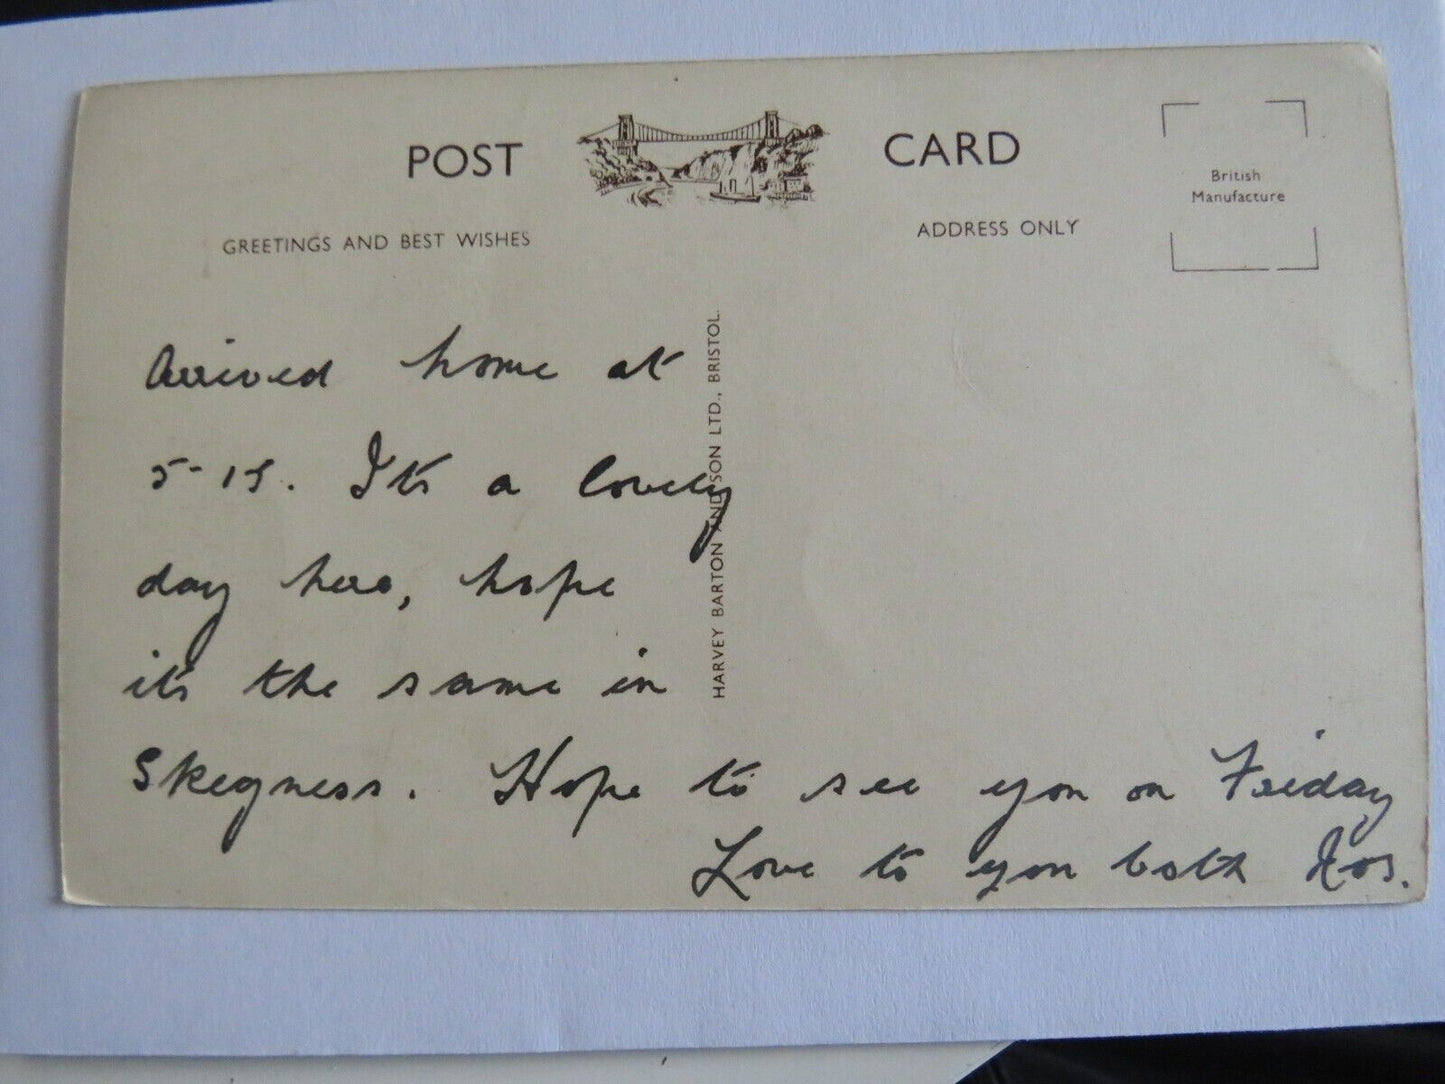 POST CARD
GREETINGS AND BEST WISHES
ADDRESS ONLY
British
Manufacture
HARVEY BARTON AND SON LTD., BRISTOL.
Arrived home at
5-15. It's a lovely
day here, hope
it's the same in
Skegness. Hope to see you on Friday
Love to you both